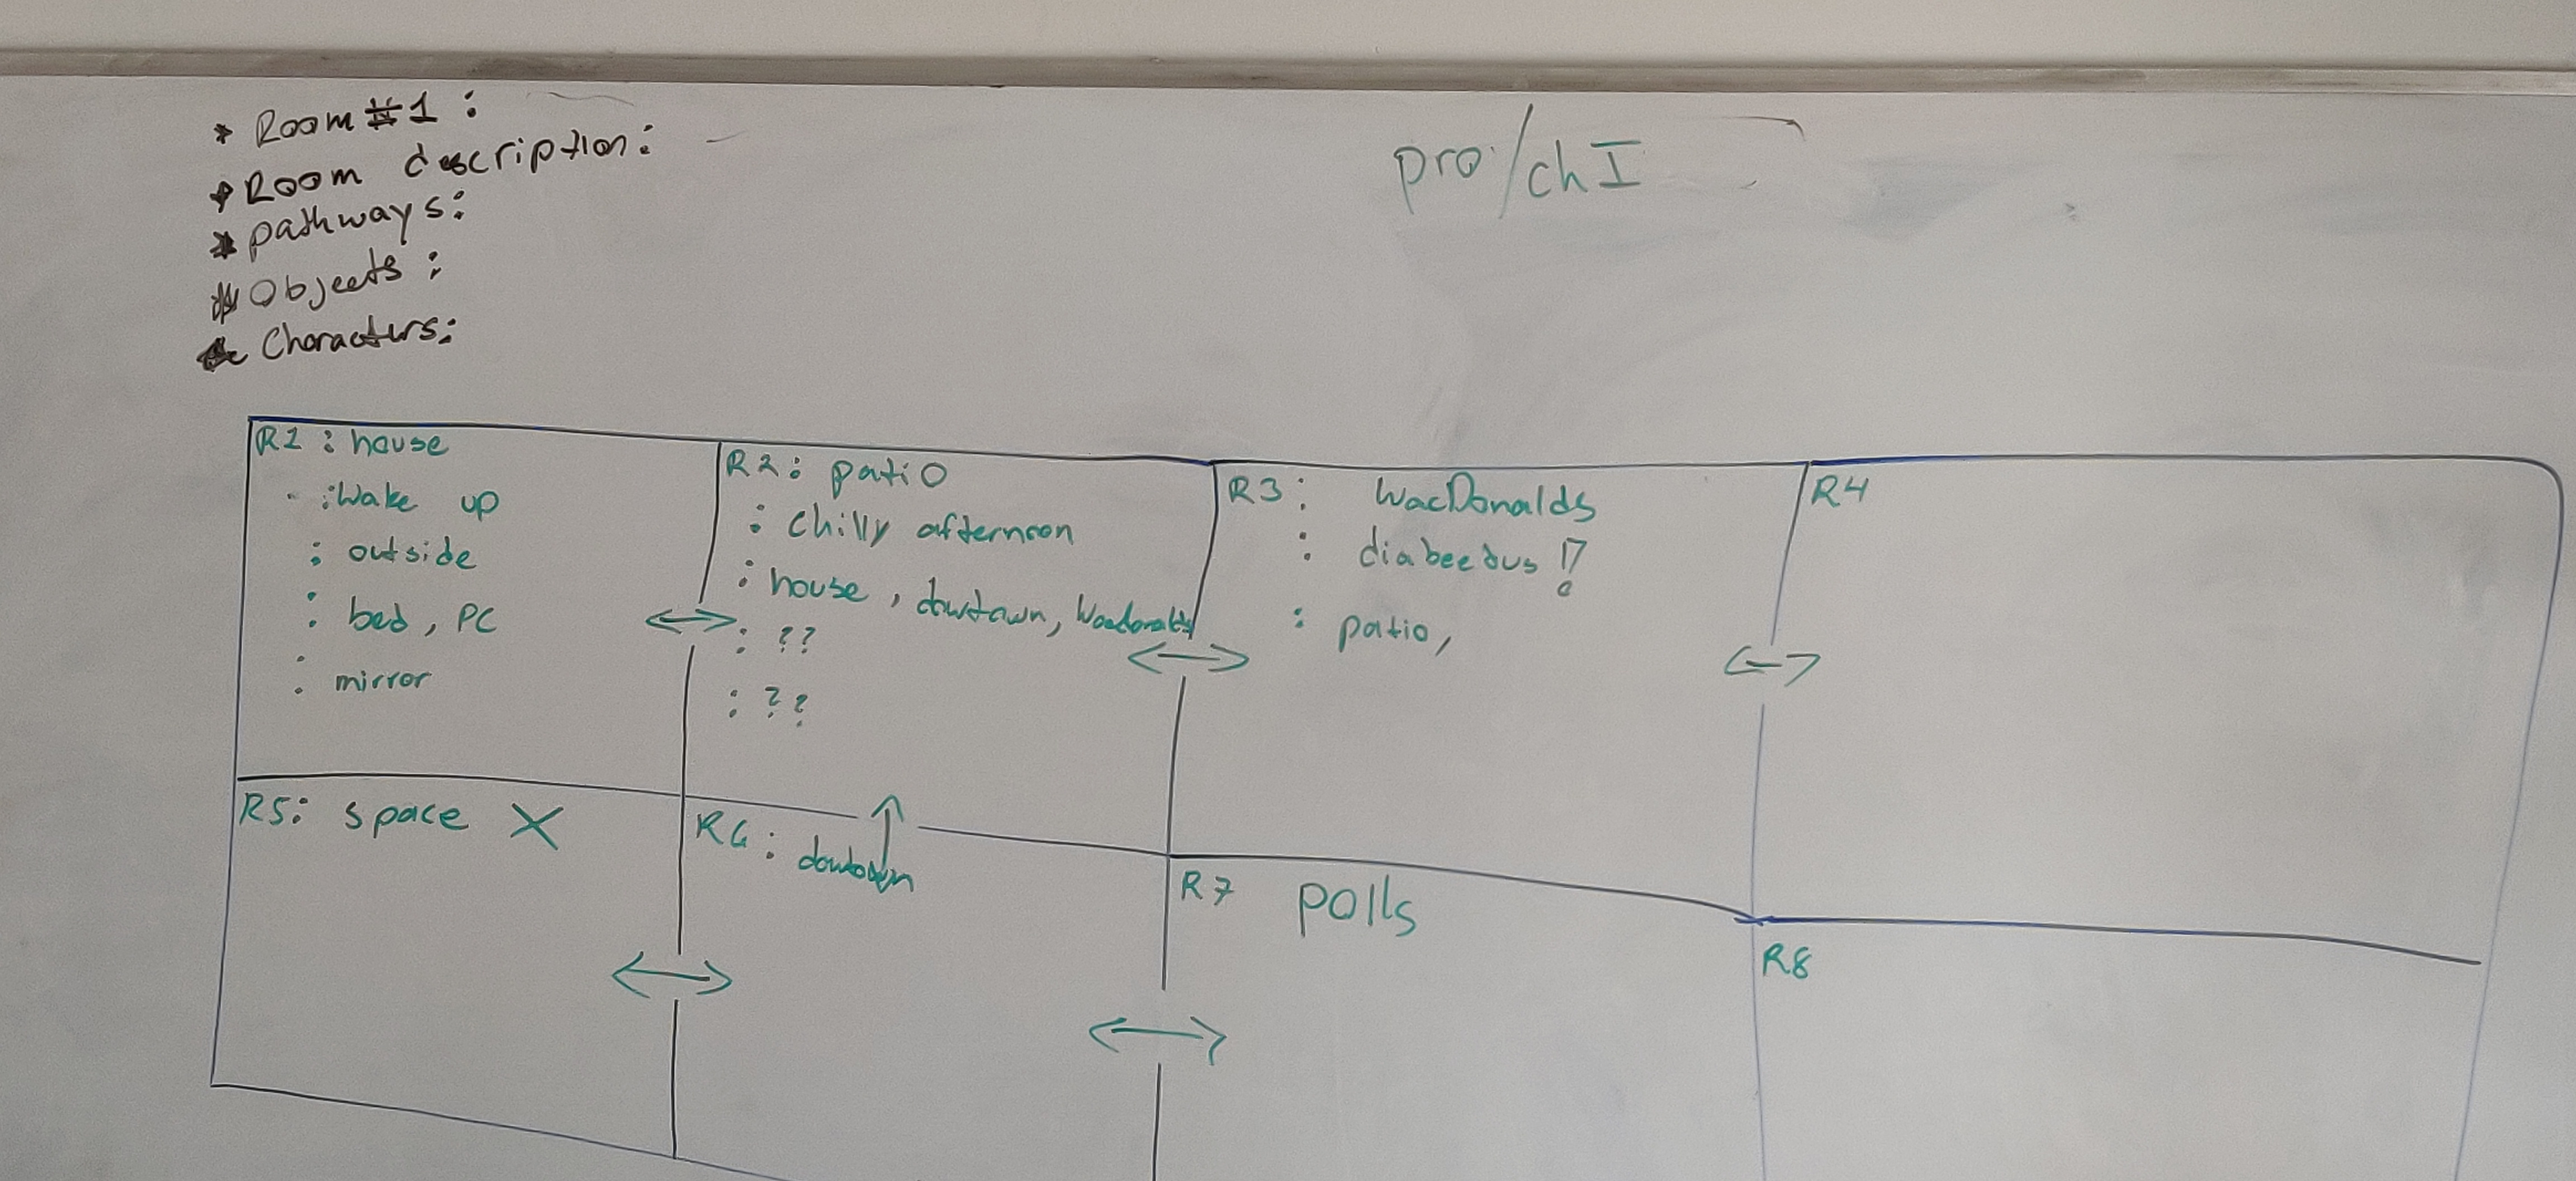 * Room #1 :
* Room description:
* pathways:
* Objects :
* Characturs:
pro/ch I
R1 : house
: Wake up
: outside
: bed, PC
: mirror
R2: patio
: chilly afternoon
: house, dowtawn, Wacdonalds
: ??
: ??
R3: WacDonalds
: diabeedus !?
: patio,
R4
R5: space X
R6: dowtown
R7 polls
R8